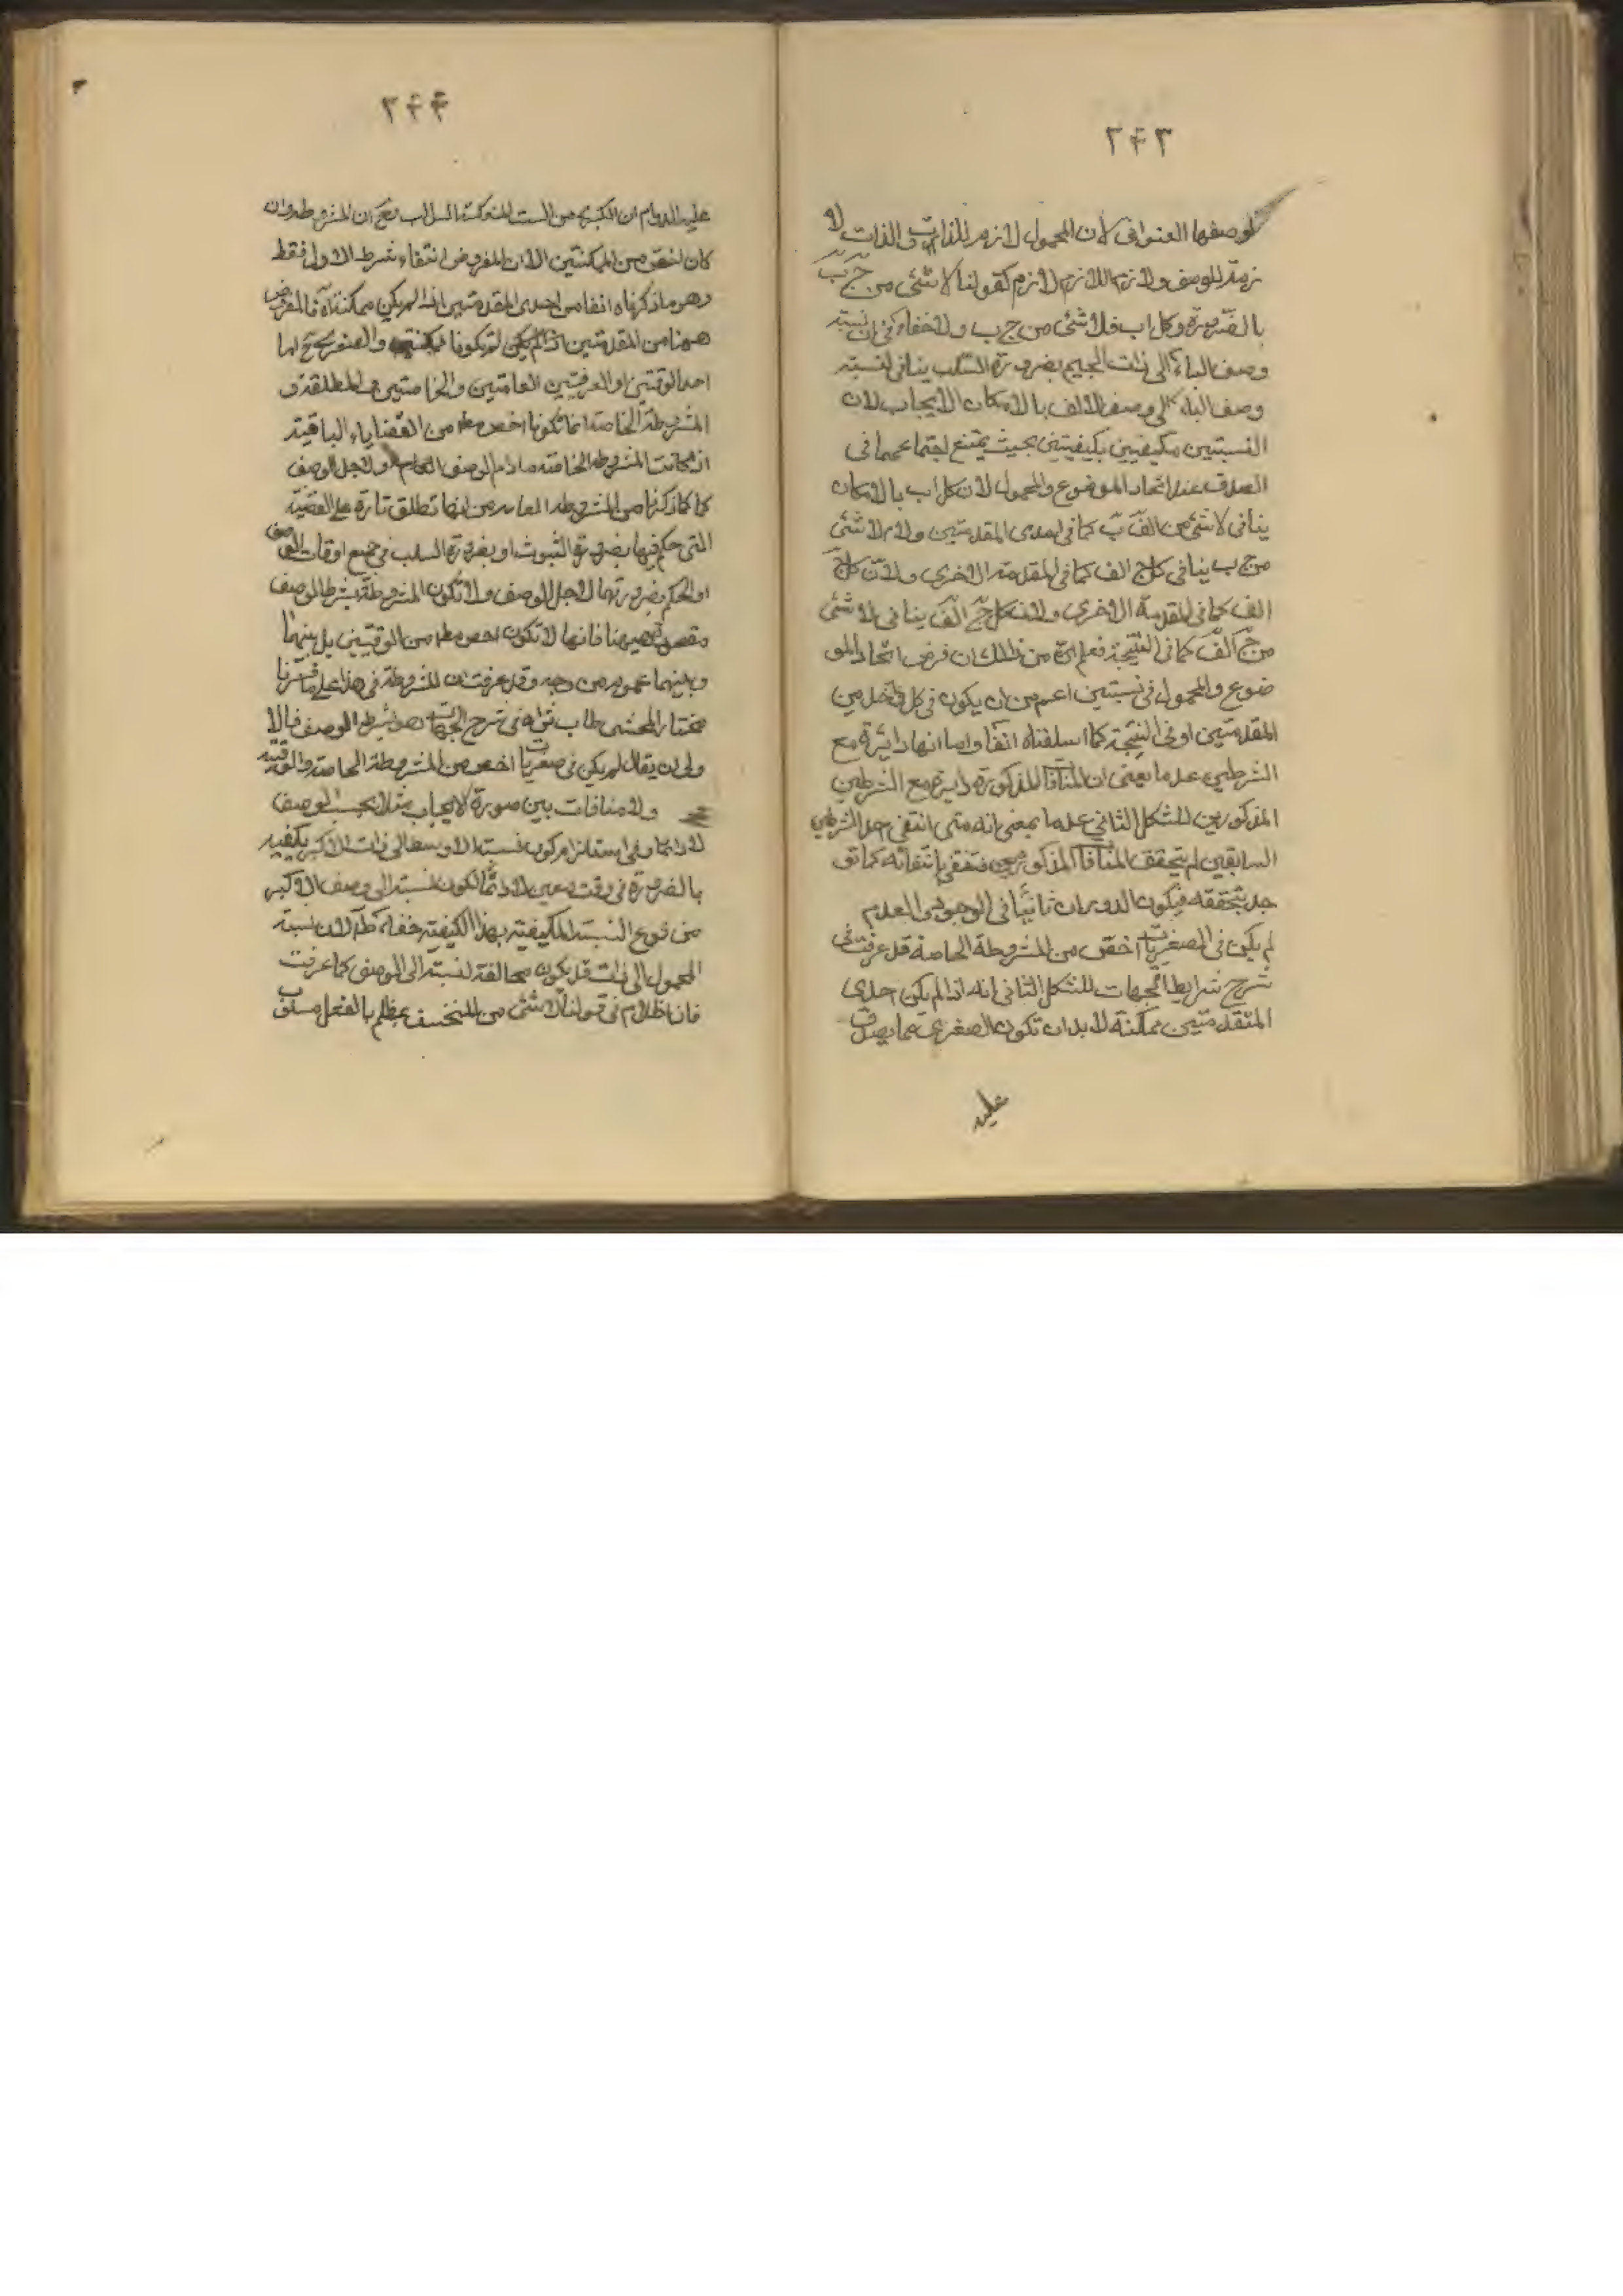 ٢٤٣
لوصفها العنوانی لان المحمول لازم للذات والذات لا
زمة للوصف ولازم اللازم لازم کقولنا لا شئ من ج ب
بالضرورة وکل اب فلا شئ من ج ب ولا خفاء فی ان نسبة
وصف الباء الی ذات الجیم بضرورة السلب ینافی لنسبة
وصف الباء الی وصف الالف بالامکان الایجاب لان
النسبتین مکیفیین بکیفیتین بحیث یمتنع اجتماعهما فی
الصدق عند اتحاد الموضوع والمحمول لان کل اب بالامکان
ینافی لا شئ من الف ب کما فی احدی المقدمتین ولان لا شئ
من ج ب ینافی کل ج الف کما فی المقدمة الاخری ولان کل ج
الف کما فی المقدمة الاخری ولان کل ج الف ینافی لا شئ
من ج الف کما فی النتیجة فعلم من ذلک ان فرض اتحاد المو
ضوع والمحمول فی نسبتین اعم من ان یکون فی کل واحد من
المقدمتین او فی النتیجة کما اسلفناه انفا واما انها دائرة مع
الشرطین عدما یعنی ان المنافا المذکورة دایرة مع الشرطین
المذکورین للشکل الثانی عدما بمعنی انه متی انتفی احد الشرطین
السابقین لم یتحقق المنافا المذکور فینتفی بانتفائه کما تو
جد بتحققه فیکون الدوران ثابتا فی الوجود والعدم
لم یکن فی الصغریات اخص من المشروطة الخاصة قد عرفت فی
شرح شرایط الجهات للشکل الثانی انه اذا لم یکن احدی
المتقدمتین ممکنة لا بد ان تکون الصغری مما یصدق
علیه
٢٤٤
علیه الدوام ان الکبری من الست المنعکسة السوالب مع ان المشروطة وان
کان اخص من الممکنتین الا ان المفروض انتفاء شرط الاول فقط
وهو ما ذکرناه انفا من احدی المقدمتین اذا لم یکن ممکنة اه فالمفروض
ههنا من المقدمتین اذا لم یکن لم یکونا ممکنتین والصغری ح اما
احد الوقتیتین او العرفیتین العامتین والخاصتین والمطلقة و
المشروطة الخاصة انما تکونا اخص مط من القضایاء الباقیة
اذا کانت المشروطة الخاصة ما دام الوصف لا لاجل الوصف
کما ذکرنا من المشروطة العامة من انها تطلق تارة علی القضیة
التی حکم فیها بضرورة الثبوت او بضرورة السلب فی جمیع اوقات الوصف
او الحکم بضرورتها لاجل الوصف ولا تکون المشروطة بشرط الوصف
مقصودة ههنا فانها لا تکون اخص مط من الوقتیتین بل بینها
وبینهما عموم من وجه وقد عرفت ان المشروطة فی هذا علی ما قررنا
مختار المحشی طاب ثراه فی شرح الجهات هو بشرط الوصف فالا
ولی ان یقال لم یکن فی صغریات اخص من المشروطة الخاصة والوقتیة
ولا منافات بین صورة الایجاب مثلا بحسب الوصف
لا دائما وفی استلزام کون نسبة الاوسط الی ذات الاکبر بکیفیة
بالضرورة فی وقت معین لا دائما لکون نسبة الی وصف الاکبر
من نوع النسبة المکیفیة بهذا الکیفیة خفاء کلا لان نسبة
المحمول الی ذات قد یکون مخالفة لنسبة الی الوصف کما عرفت
فان اظلام فی قولنا لا شئ من المنخسف بمظلم بالفعل مسلوب